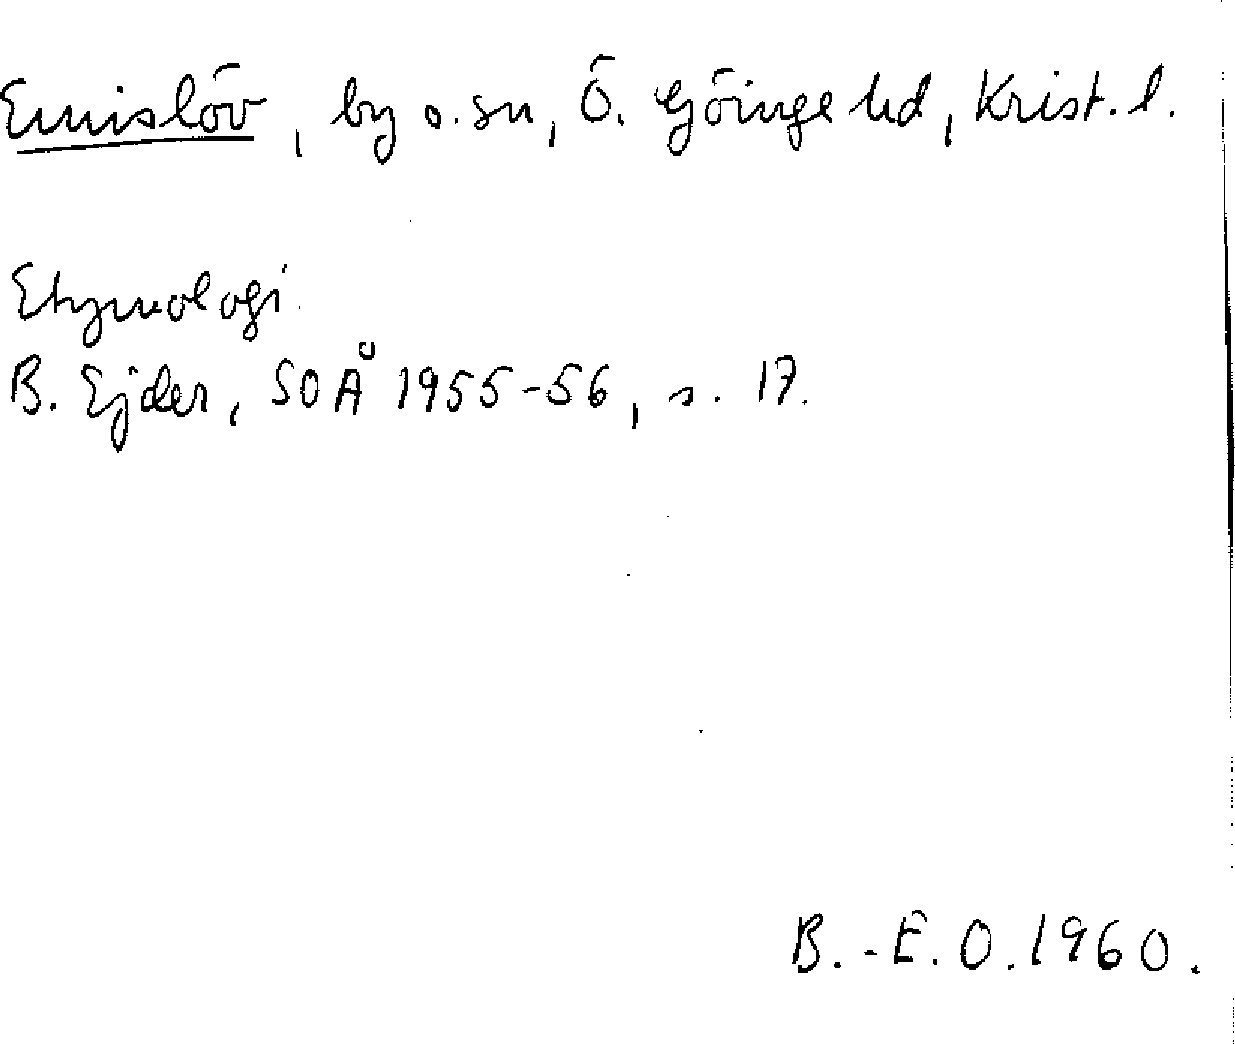 Emislöv, by o. sn, Ö. Göinge hd, Krist. l.
Etymologi.
B. Ejder, SOÅ 1955-56, s. 17.
B.-E. O. 1960.